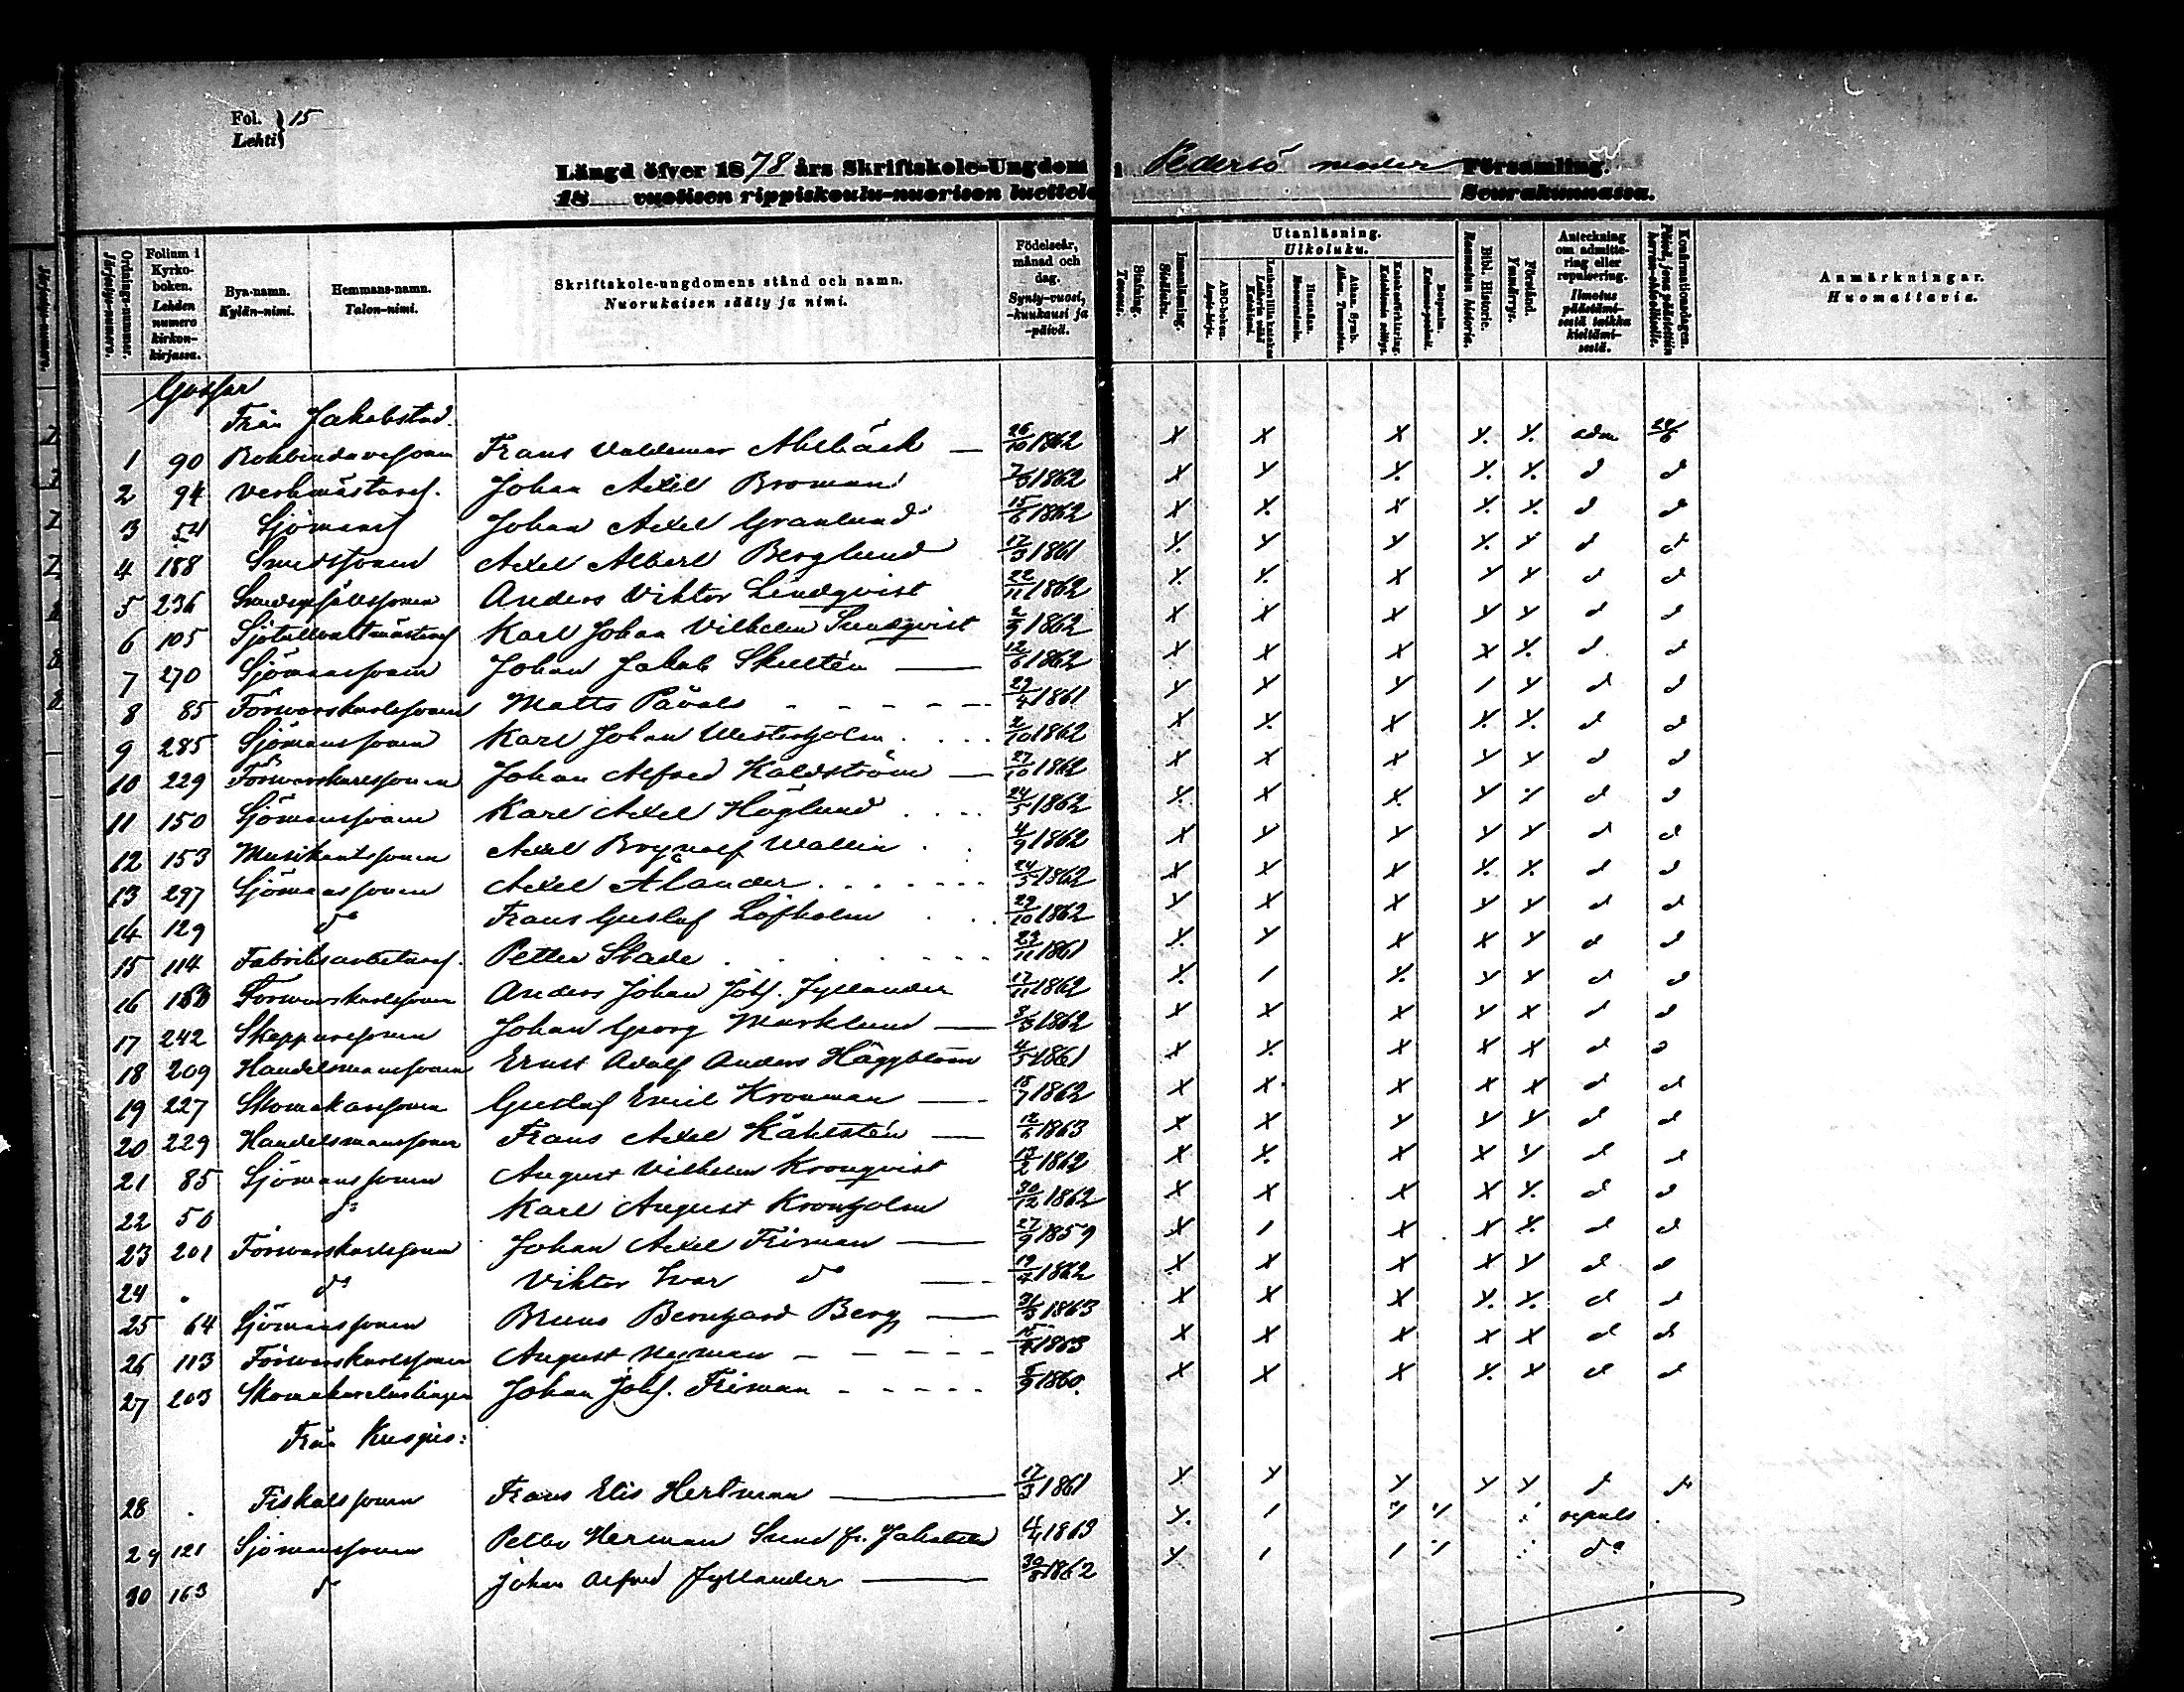 Fol. } 15
Lehti }
Längd öfver 1878 års Skriftskole-Ungdom i Pedersö moder Församling.
18 vuotisen rippikoulu-nuorison luettelo Seurakunnassa.
Ordnings-nummer. Järjestys-numero.
Folium i Kyrko-boken. Lehden numero kirkon-kirjassa.
Bya-namn. Kylän-nimi.
Hemmans-namn. Talon-nimi.
Skriftskole-ungdomens stånd och namn. Nuorukaisen sääty ja nimi.
Födelseår, månad och dag. Synty-vuosi, -kuukausi ja -päivä.
Stafning. Tavaus.
Innanläsning. Sisäluku.
Utanläsning. Ulkoluku.
ABC-boken. Aapis-kirja.
Hustaflan. Huoneentaulu.
Athan. Symb. Athan. Tunnustus.
Botpsalm. Katumus-psalmi.
Bibl. Historie. Raamatun historia.
Förstånd. Ymmärrys.
Anteckning om admitte-ring eller repulsering. Ilmotus päästämi-sestä taikka kieltämi-sestä.
Konfirmationsdagen.
Anmärkningar. Huomattavia.
Gossar
Från Jakobstad.
1 90 Bokbindaresonen Frans Valdemar Ahlbäck — 26/10 1862 x x x x. x. adm 24/6
2 94 Verkmästares. Johan Axel Broman 7/3 1862 x x x. x. x. d d
3 54 Sjömans Johan Axel Granlund 15/6 1862 x x. x x. x. d d
4 188 Smedssonen Axel Albert Berglund 17/3 1861 x. x x x. x d d
5 236 Smedgesällssonen Anders Viktor Lindqvist 22/11 1862 x. x. x x x d d
6 105 Sjötullvaktmästares Karl Johan Vilhelm Sundqvist 2/9 1862 x x x x x d d
7 270 Sjömanssonen Johan Jakob Skultén — 12/6 1862 x x x x x. d d
8 85 Förvarskarlssonen Matts Påvals - - - - - 29/4 1861 x x x / x d d
9 285 Sjömanssonen Karl Johan Westerholm . . . . 2/10 1862 x x. x x. x. d d
10 229 Förvarskarlssonen Johan Alfred Kaldström — 27/10 1862 x x x x x d d
11 150 Sjömanssonen Karl Axel Höglund . . . . 24/5 1862 x. x x. x x d d
12 153 Musikantssonen Axel Brynolf Wallin . . 4/9 1862 x x x x x d d
13 297 Sjömanssonen Axel Ålander . . . . . . . 24/5 1862 x x x x. x. d d
14 129 d:o Frans Gustaf Löfholm . . . 29/10 1862 x x x x x d d
15 114 Fabriksarbetares. Petter Stade . . . . . . . 23/11 1861 x. x x x x d d
16 Förvarskarlssonen Anders Johan Johs. Jyllander 17/11 1862 x. / x. x x d d
17 242 Skepparesonen Johan Georg Marklund — 8/3 1862 x x x x x d d
18 209 Handelsmanssonen Ernst Adolf Anders Häggblom 4/5 1861 x x. x x x d d
19 227 Skomakaresonen Gustaf Emil Kronman — 18/7 1862 x x. x x x d d
20 229 Handelsmanssonen Frans Axel Kåhlstén — 12/6 1863 x x x x x d d
21 85 Sjömanssonen August Vilhelm Kronqvist 13/2 1862 x x. x x x d d
22 50 d:o Karl August Kronholm 30/12 1862 x x x x x. d d
23 201 Förvarskarlssonen Johan Axel Friman — 27/9 1859 x / x x x. d d
24 " d:o Viktor Ivar d:o — 1862 x. x x x x d d
25 64 Sjömanssonen Bruno Bernhard Berg — 31/3 1863 x x x x. x. d d
26 113 Förvarskarlssonen August Nyman - - - - - 1863 x x x x x d d
27 203 Skomakarelärlingen Johan Johs. Friman - - - - - 1860 x x x x. x d d
Från Kuspis:
28 . Fiskalssonen Frans Elis Hertman — 17/3 1861 x x x x x d d
29 121 Sjömanssonen Petter Herman Sund fr. Jakobstad 1863 x. / repuls .
30 163 d:o Johan Alfred Jyllander — 1862 x / / d:o